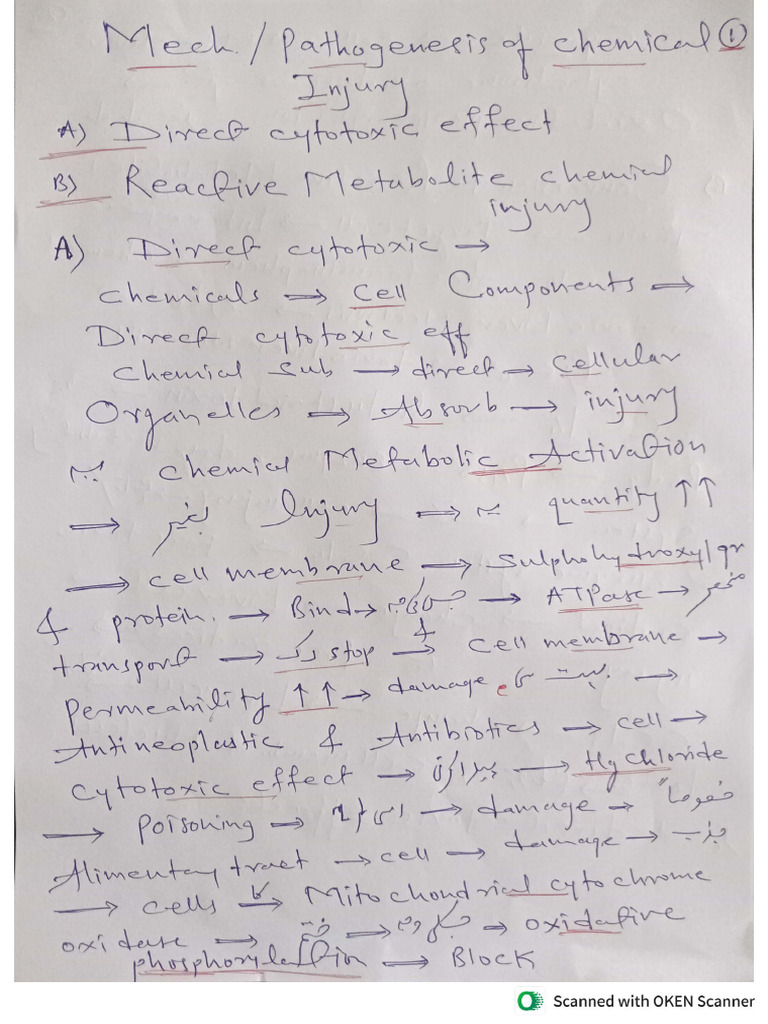 Mech. / Pathogenesis of chemical ①
Injury
A) Direct cytotoxic effect
B) Reactive Metabolite chemical
injury
A) Direct cytotoxic →
chemicals → cell Components →
Direct cytotoxic eff
chemical sub → direct → cellular
Organelles → Absorb → injury
یہ chemical Metabolic Activation
→ بغیر Injury → یہ quantity ↑↑
→ cell membrane → Sulphohydroxyl gr
& protein. → Bind → جس کی وجہ → ATPase → منحصر
transport → رک stop → & cell membrane →
Permeability ↑↑ → damage بہت →
Antineoplastic & Antibiotics → cell →
cytotoxic effect → پیدا کرتی → Hg chloride
→ Poisoning → → damage → خصوصاً
Alimentary tract → cell → damage → جذب
→ cells کا → Mitochondrial cytochrome
oxidase → → جسکی وجہ → oxidative
phosphorylation → Block
Scanned with OKEN Scanner